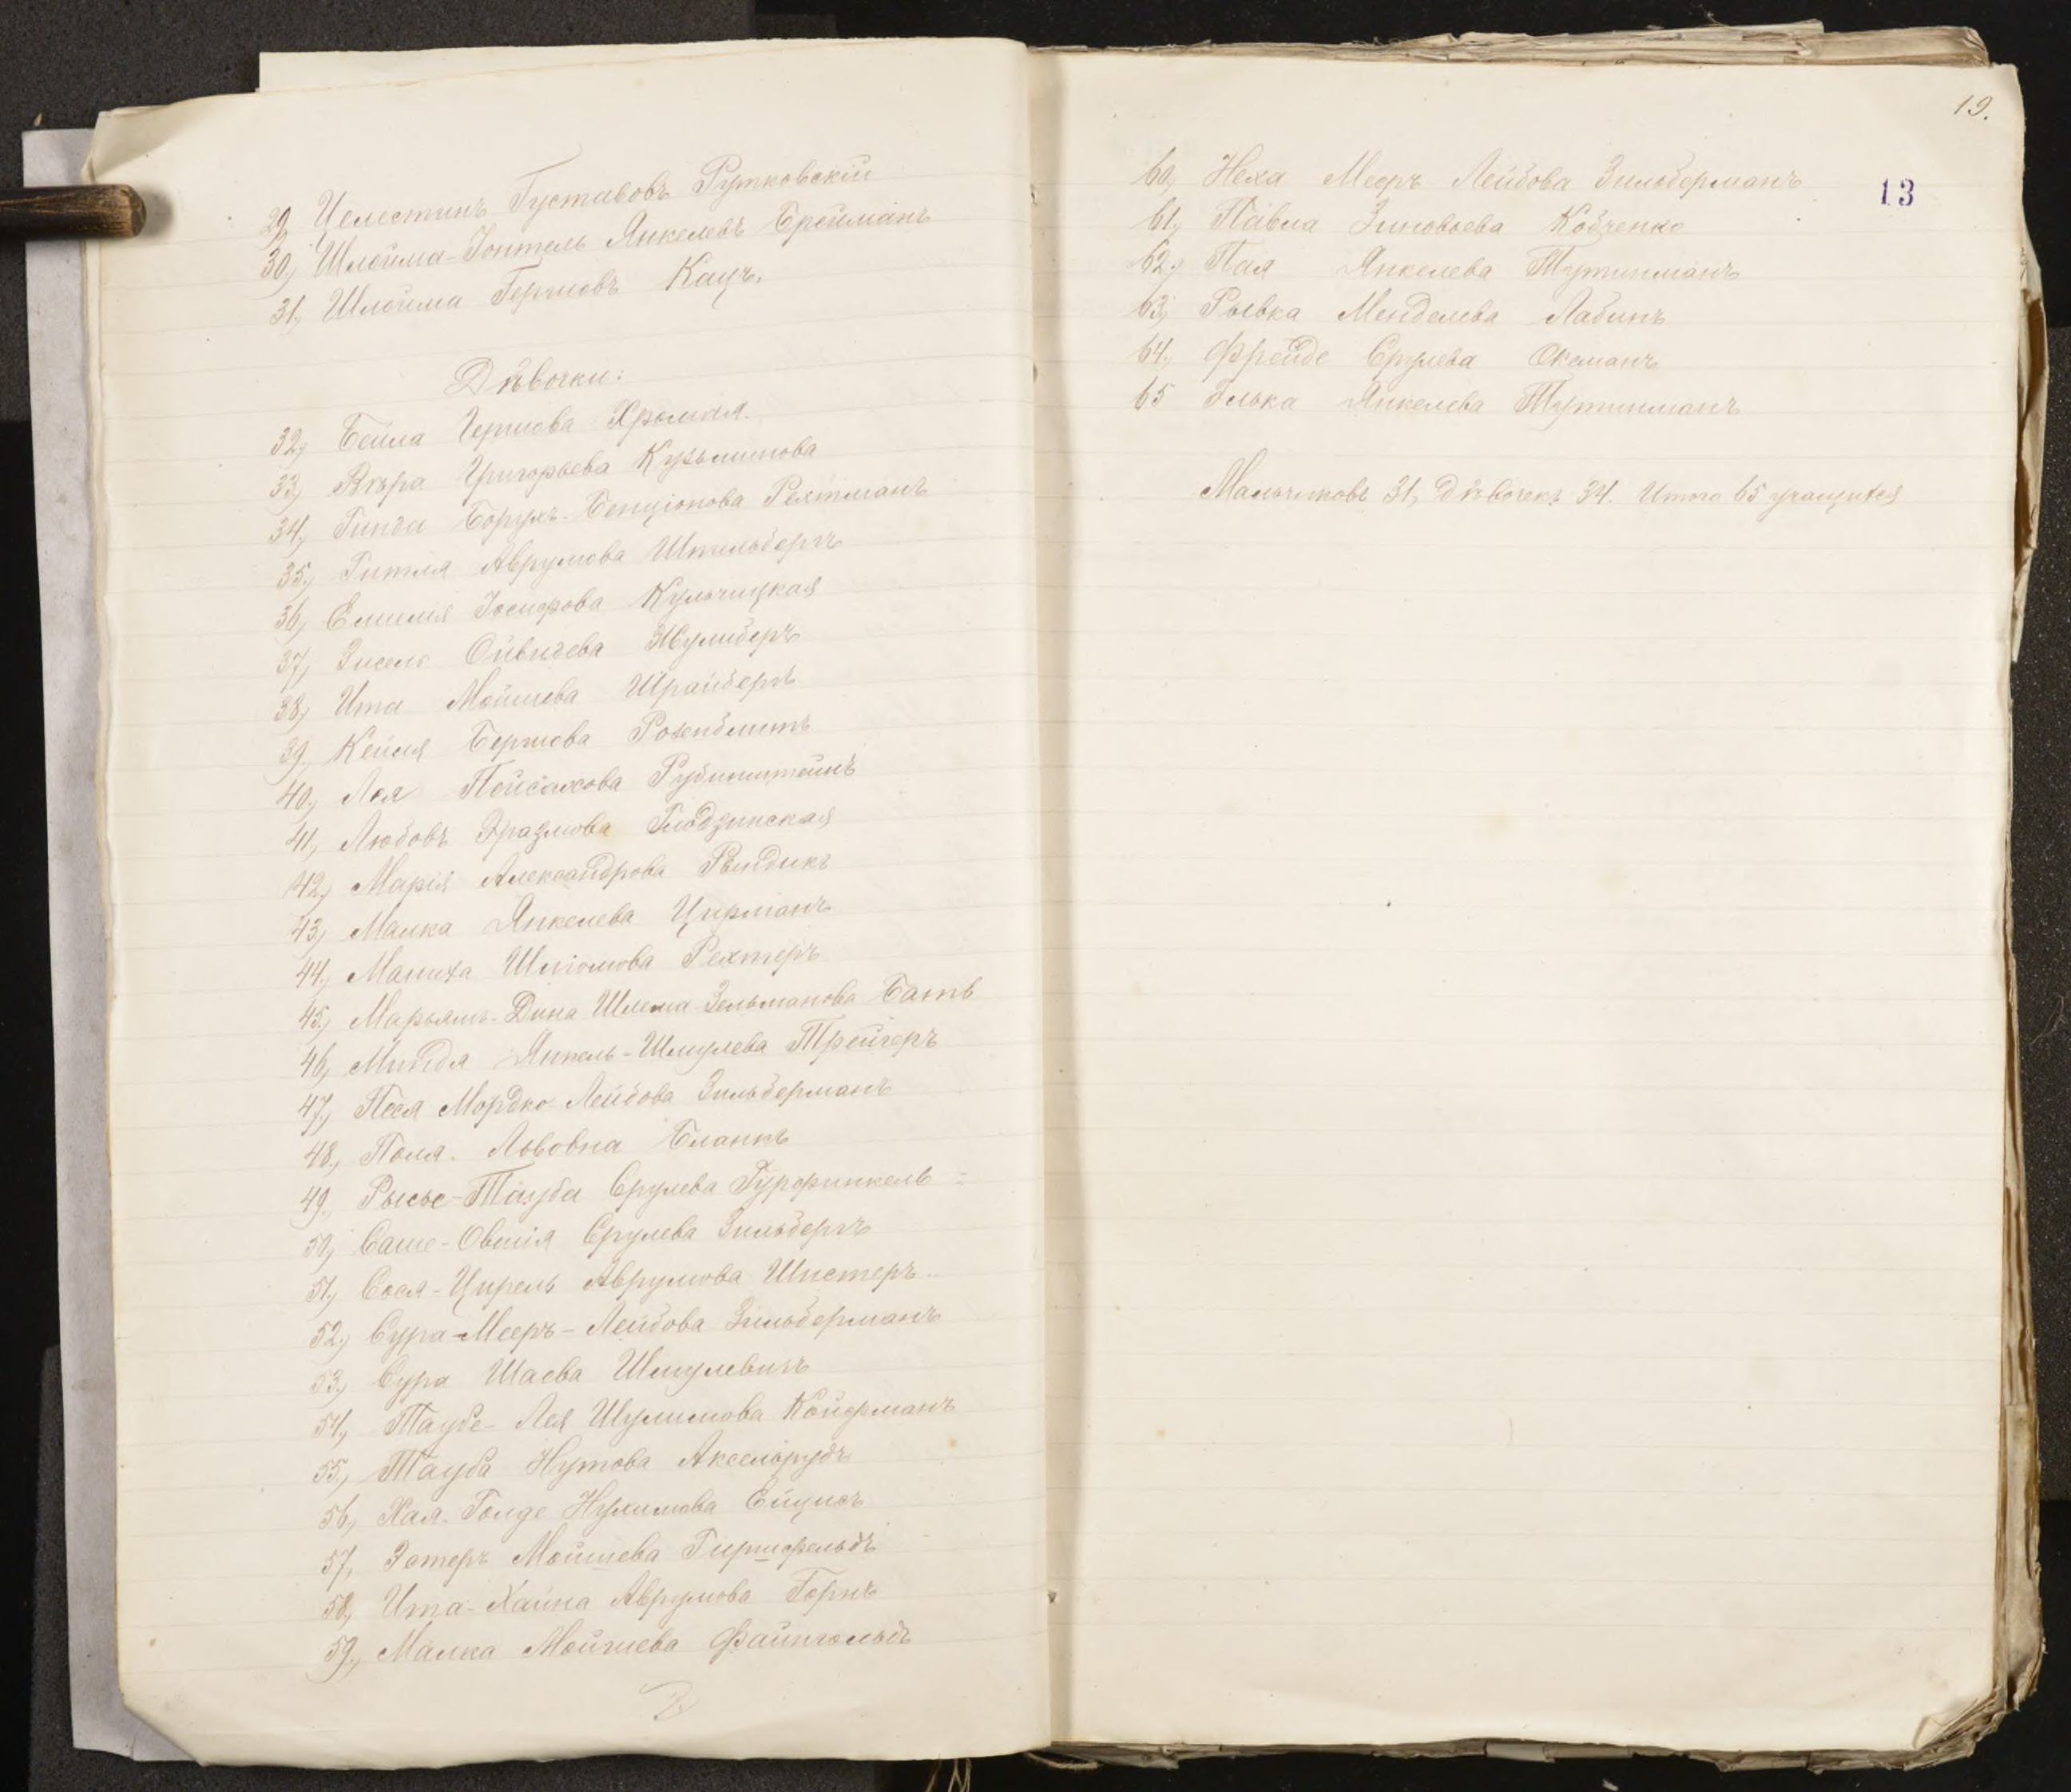 29, Целестинъ Густавовъ Рутковскій
30, Шлойма-Іонтель Янкелевъ Бройманъ
31, Шлойма Гершовъ Кацъ.
Дѣвочки:
32, Бейла Гершова Хромая.
33, Вѣра Григорьева Кузьминова
34, Гинда Борухъ-Бенціонова Рехтманъ
35, Гитля Аврумова Штильбергъ
36, Емилія Іосифова Кульчицкая
37, Зисель Ойвидева
38, Ита Мойшева Шрайберъ
39, Кейля Бершова Розенблитъ
40, Лея Пейсахова Рубинштейнъ
41, Любовь Эразмова Глодзинская
42, Марія Александрова Рындикъ
43, Малка Янкелева Цирманъ
44, Маниха Шліомова Рехтеръ
45, Марьямъ-Дина Шлема-Зельманова Батъ
46, Миндля Янкель-Шмулева Трейгеръ
47, Песя Мордко-Лейбова Зильберманъ
48, Поля. Львовна Бланкъ
49, Рысье-Тауба Срулева Гурфинкель
50, Саше-Овшія Срулева Зильбергъ
51, Сося-Цирель Аврумова Шистеръ
52, Сура-Мееръ-Лейбова Зильберманъ
53, Сура Шаева Шмулевичъ
54, Таубе-Лея Шулимова Койфманъ
55, Тауба Нутова Аксельрудъ
56, Хая-Голде Нухимова Ейцисъ
57, Эстеръ Мойшева Гиршфельдъ
58, Ита-Хайка Аврумова Горнъ
59, Малка Мойшева Файнгольдъ
19.
13
60, Неха Мееръ Лейбова Зильберманъ
61, Павла Зиновьева Кобченко
62, Пая Янкелева Тутинманъ
63, Рывка Менделева Лабинъ
64, Фрейде Срулева Оксманъ
65 Элька Янкелева Тутинманъ
Мальчиковъ 31, Дѣвочекъ 34. Итого 65 учащихся